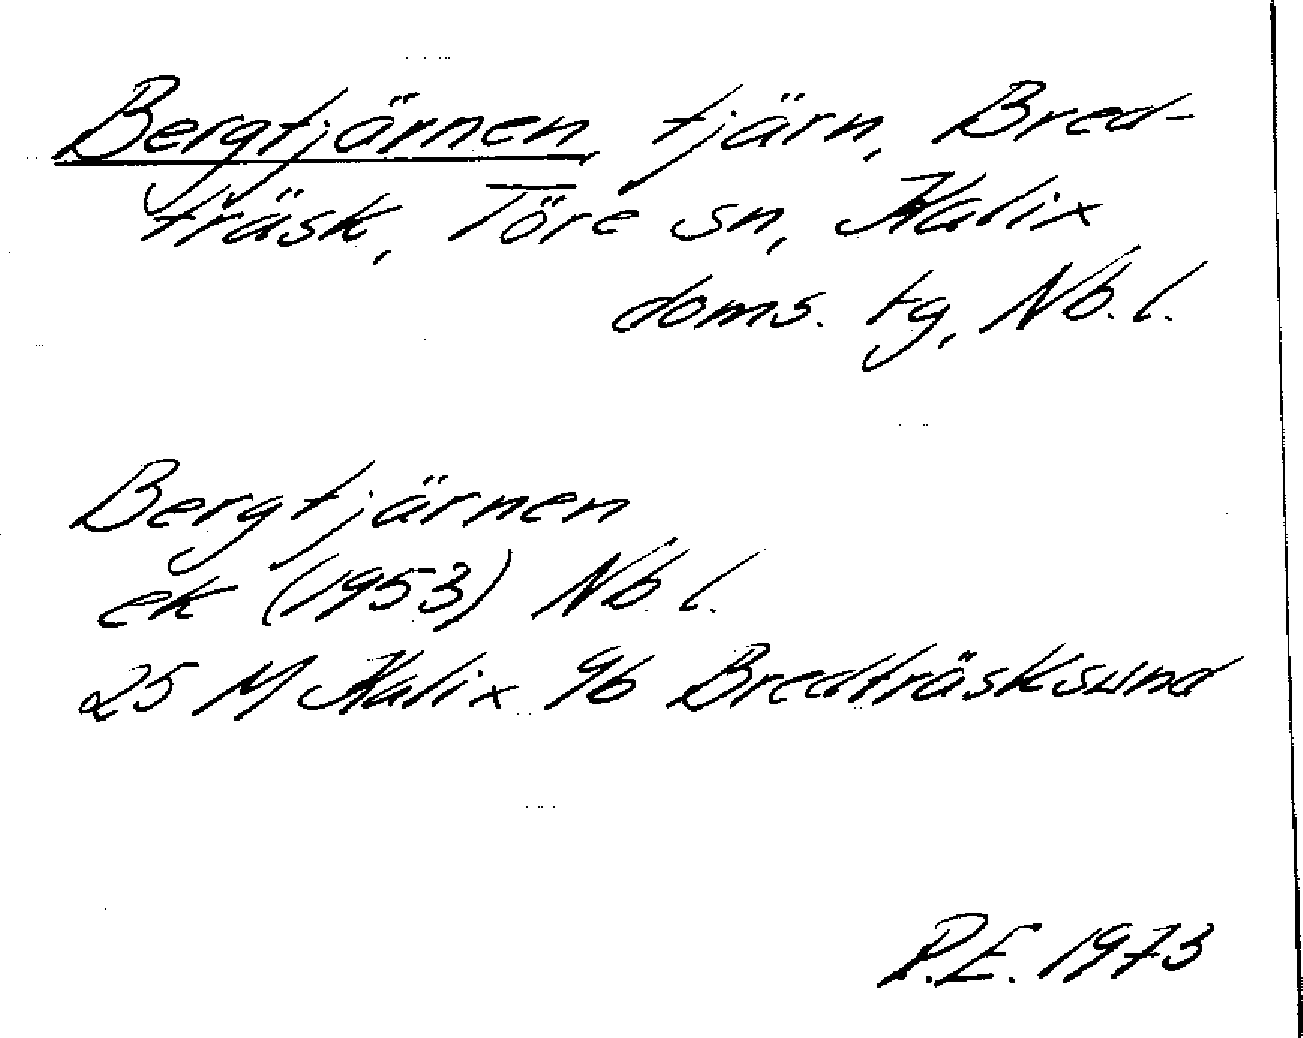 Bergtjärnen, tjärn, Bred-
träsk, Töre sn, Kalix
doms. tg, Nb. l.
Bergtjärnen
ek (1953) Nb l.
25 M Kalix 9b Bredträsksund
P.E. 1973